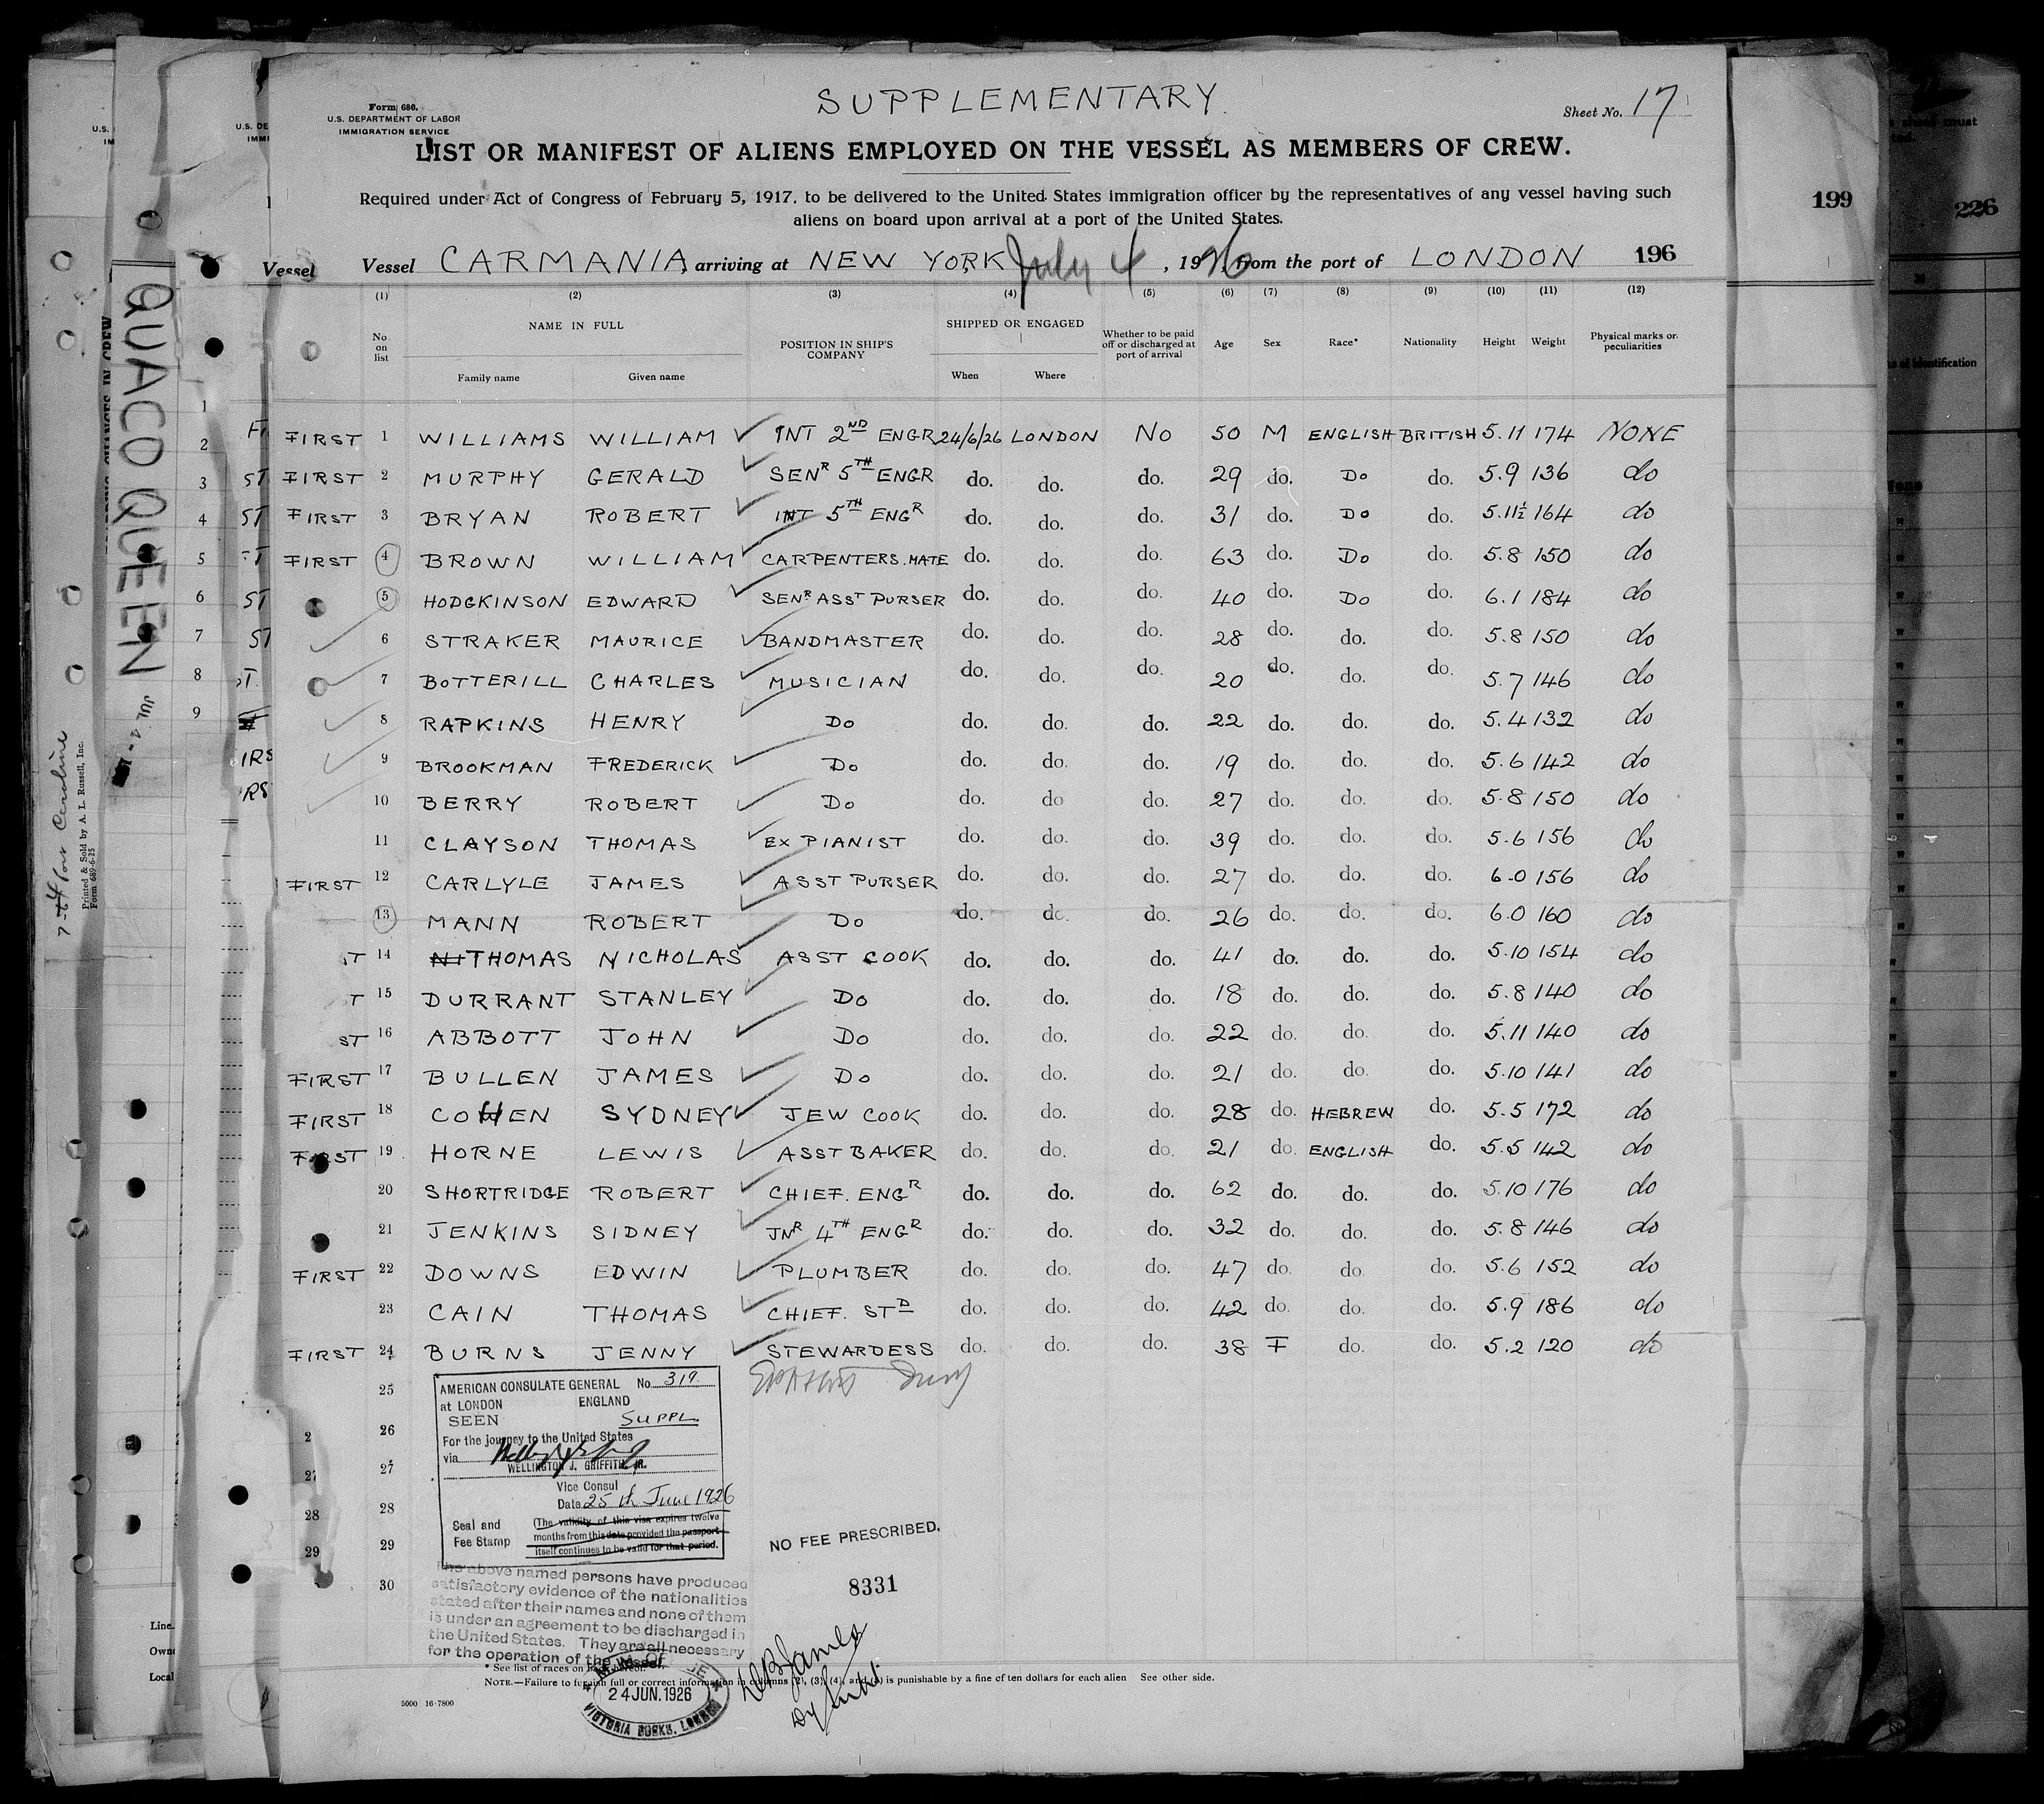 SUPPLEMENTARY
Form 680.
U.S. DEPARTMENT OF LABOR
IMMIGRATION SERVICE
Sheet No. 17
LIST OR MANIFEST OF ALIENS EMPLOYED ON THE VESSEL AS MEMBERS OF CREW.
Required under Act of Congress of February 5, 1917, to be delivered to the United States immigration officer by the representatives of any vessel having such
aliens on board upon arrival at a port of the United States.
Vessel CARMANIA, arriving at NEW YORK July 4, 1926, from the port of LONDON 196
(1) (2) (3) (4) (5) (6) (7) (8) (9) (10) (11) (12)
No. on list NAME IN FULL Family name Given name POSITION IN SHIP'S COMPANY SHIPPED OR ENGAGED When Where Whether to be paid off or discharged at port of arrival Age Sex Race* Nationality Height Weight Physical marks or peculiarities
FIRST 1 WILLIAMS WILLIAM INT 2ND ENGR 24/6/26 LONDON NO 50 M ENGLISH BRITISH 5.11 174 NONE
FIRST 2 MURPHY GERALD SENR 5TH ENGR do. do. do. 29 do. Do do. 5.9 136 do
FIRST 3 BRYAN ROBERT INT 5TH ENGR do. do. do. 31 do. Do do. 5.11½ 164 do
FIRST 4 BROWN WILLIAM CARPENTERS.MATE do. do. do. 63 do. Do do. 5.8 150 do
5 HODGKINSON EDWARD SENR ASST PURSER do. do. do. 40 do. Do do. 6.1 184 do
6 STRAKER MAURICE BANDMASTER do. do. do. 28 do. do. do. 5.8 150 do
7 BOTTERILL CHARLES MUSICIAN do. do. do. 20 do. do. do. 5.7 146 do
8 RAPKINS HENRY Do do. do. do. 22 do. do. do. 5.4 132 do
9 BROOKMAN FREDERICK Do do. do. do. 19 do. do. do. 5.6 142 do
10 BERRY ROBERT Do do. do do. 27 do. do. do. 5.8 150 do
11 CLAYSON THOMAS EX PIANIST do. do. do. 39 do. do. do. 5.6 156 do
FIRST 12 CARLYLE JAMES ASST PURSER do. do. do. 27 do. do. do. 6-0 156 do
13 MANN ROBERT Do do. do. do. 26 do. do. do. 6.0 160 do
T 14 THOMAS NICHOLAS ASST COOK do. do. do. 41 do. do. do. 5.10 154 do
T 15 DURRANT STANLEY Do do. do. do. 18 do. do. do. 5.8 140 do
ST 16 ABBOTT JOHN Do do. do. do. 22 do. do. do. 5.11 140 do
FIRST 17 BULLEN JAMES Do do. do. do. 21 do. do. do. 5.10 141 do
FIRST 18 COHEN SYDNEY JEW COOK do. do. do. 28 do. HEBREW do. 5.5 172 do
FIRST 19 HORNE LEWIS ASST BAKER do. do. do. 21 do. ENGLISH do. 5.5 142 do
20 SHORTRIDGE ROBERT CHIEF. ENGR do. do. do. 62 do. do. do. 5.10 176 do
21 JENKINS SIDNEY JNR 4TH ENGR do. do. do. 32 do. do. do. 5.8 146 do
FIRST 22 DOWNS EDWIN PLUMBER do. do. do. 47 do. do. do. 5.6 152 do
23 CAIN THOMAS CHIEF. STD do. do. do. 42 do. do. do. 5.9 186 do
FIRST 24 BURNS JENNY STEWARDESS do. do. do. 38 F do. do. 5.2 120 do
25
26
27
28
29
30
AMERICAN CONSULATE GENERAL No. 319.
at LONDON ENGLAND
SEEN SUPPL
For the journey to the United States
via
WELLINGTON J. GRIFFITH, JR.
Vice Consul
Date 25th June 1926
Seal and Fee Stamp
(The validity of this visa expires twelve
months from this date provided the passport
itself continues to be valid for that period.
NO FEE PRESCRIBED.
8331
The above named persons have produced
satisfactory evidence of the nationalities
stated after their names and none of them
is under an agreement to be discharged in
the United States. They are all necessary
for the operation of the vessel.
* See list of races on back hereof.
NOTE.—Failure to furnish full or correct information in columns (2), (3), (4), and (5) is punishable by a fine of ten dollars for each alien See other side.
24 JUN. 1926
VICTORIA DOCKS, LONDON
5000 16-7800
QUACO QUEEN
JUL 4
Printed & Sold by A. L. Russell, Inc.
Form 689-6-25
Vessel
199
226
of identification